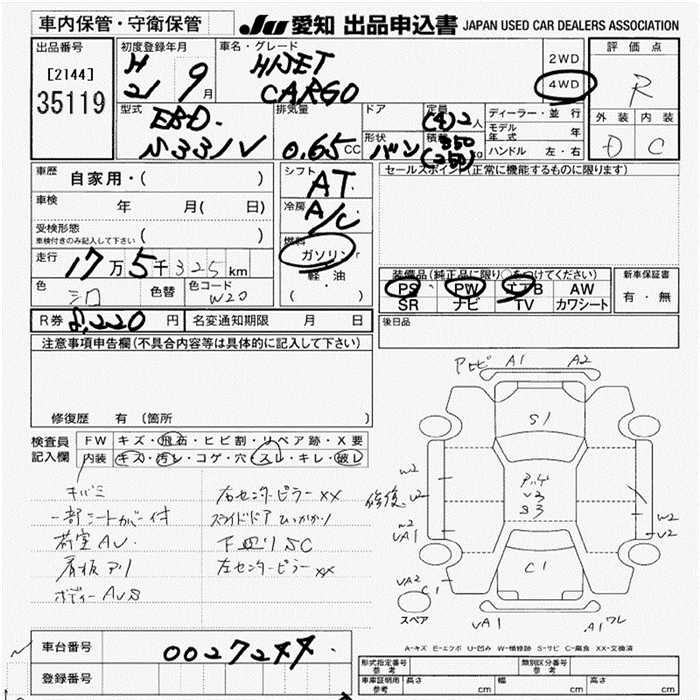 車内保管・守衛保管
JU 愛知 出品申込書 JAPAN USED CAR DEALERS ASSOCIATION
出品番号
[2144]
35119
初度登録年月
H 21 9月
車名・グレード
HIJET
CARGO
2WD
4WD
評価点
R
外装 内装
D C
型式
EBD-
S331V
排気量
0.65CC
ドア
形状
バン
定員
(4) 2人
積載
350
(250)kg
ディーラー・並行
モデル年式 年
ハンドル 左・右
車歴 自家用・( )
車検 年 月( 日)
受検形態
車検付きのみ記入して下さい ( )
走行 17万5千325km
色 シロ 色替 色コード W20
シフト
AT
冷房
A/C
燃料
ガソリン
軽・油
( )
セールスポイント(正常に機能するものに限ります)
装備品(純正品に限り○をつけてください)
PS PW エアB AW
SR ナビ TV カワシート
新車保証書
有・無
R券 8,220円 名変通知期限 月 日
後日品
注意事項申告欄(不具合内容等は具体的に記入して下さい)
修復歴 有 (箇所
検査員
記入欄
FW キズ・飛石・ヒビ割・リペア跡・X要
内装 キズ・汚レ・コゲ・穴・スレ・キレ・破レ
キバミ
一部シートカバー付
荷室AU.
看板アリ
ボディーAUS
右センターピラーXX
スライドドアひっかかり
下回りSC
左センターピラーXX
アヒビ A1 A2
S1
W2
修復 U2
W2
UA1
U3
S3
W2
U2
C1
UA2
C1
スペア
UA1
A1 ワレ
A-キズ E-エクボ U-凹み W-補修跡 S-サビ C-腐食 XX-交換済
車台番号 0027244
登録番号
形式指定番号
参考
類別区分番号
参考
車庫証明用
参考
長さ cm 幅 cm 高さ cm